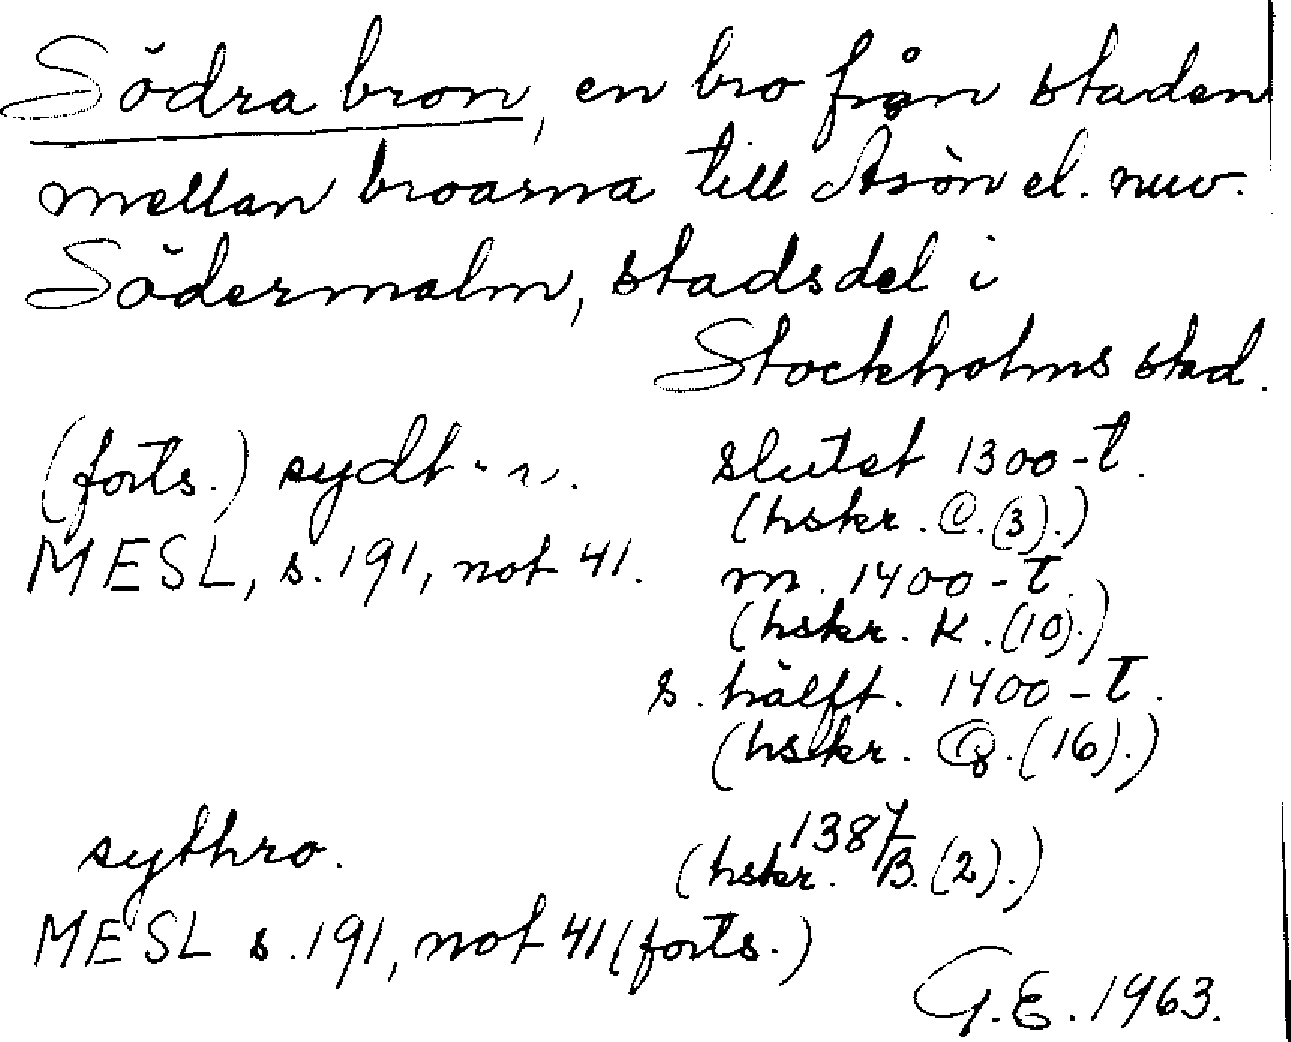 Södra bron, en bro från staden
mellan broarna till Åsön el. nuv.
Södermalm, stadsdel i
Stockholms stad.
(forts.) sydh slutet 1300-t.
(hskr. C. (3).)
MESL, s. 191, not 41. m. 1400-t.
(hskr. K. (10).)
s. hälft. 1400-t.
(hskr. Q. (16).)
sythro. 1387
(hskr. B. (2).)
MESL s. 191, not 41 (forts.)
G.E. 1963.